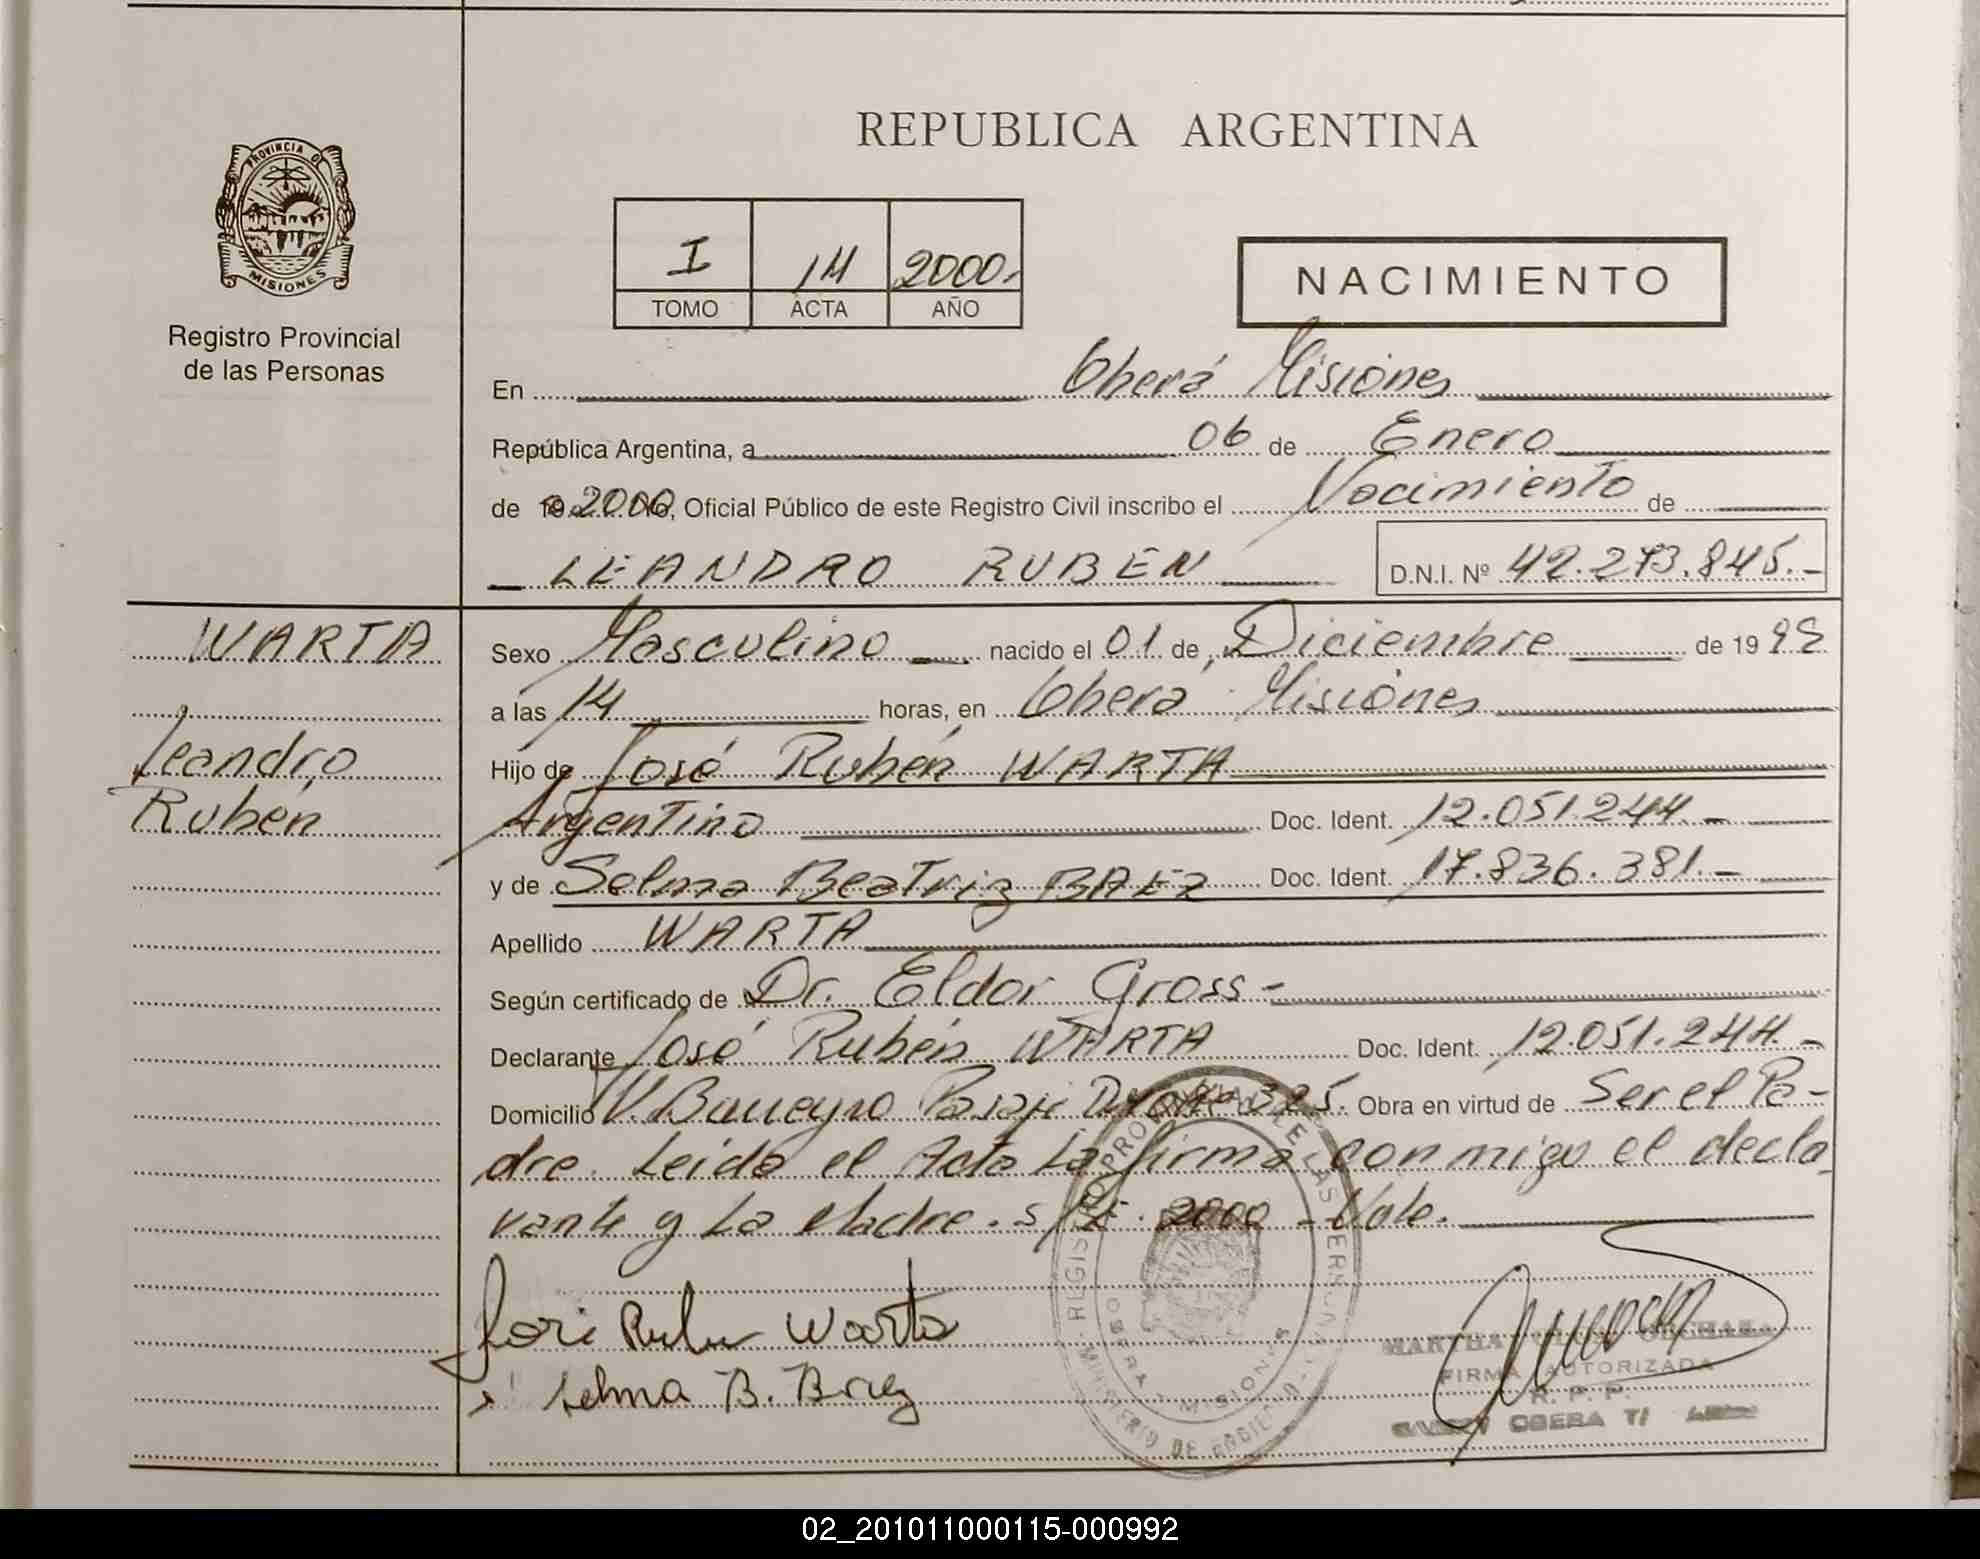 REPUBLICA ARGENTINA
PROVINCIA DE
MISIONES
Registro Provincial
de las Personas
I 14 2000.
TOMO ACTA AÑO
NACIMIENTO
En Oberá Misiones
República Argentina, a 06 de Enero
de 2000, Oficial Público de este Registro Civil inscribo el Nacimiento de
LEANDRO RUBEN D.N.I. Nº 42.273.845.-
WARTA
Leandro
Rubén
Sexo Masculino nacido el 01 de Diciembre de 1999
a las 14 horas, en Oberá Misiones
Hijo de José Rubén WARTA
Argentino Doc. Ident. 12.051.244.-
y de Selma Beatriz BAEZ Doc. Ident. 17.836.381.-
Apellido WARTA
Según certificado de Dr. Eldor Gross-
Declarante José Rubén WARTA Doc. Ident. 12.051.244.-
Domicilio V. Barreyro Pasaje 325. Obra en virtud de Ser el Pa-
dre. Leida el Acta La firma conmigo el decla
rante y La Madre. s/ 2000 - Vale.
José Rubén Warta
Selma B. Baez
MARTHA
FIRMA AUTORIZADA
R. P. P.
OBERA
02_201011000115-000992